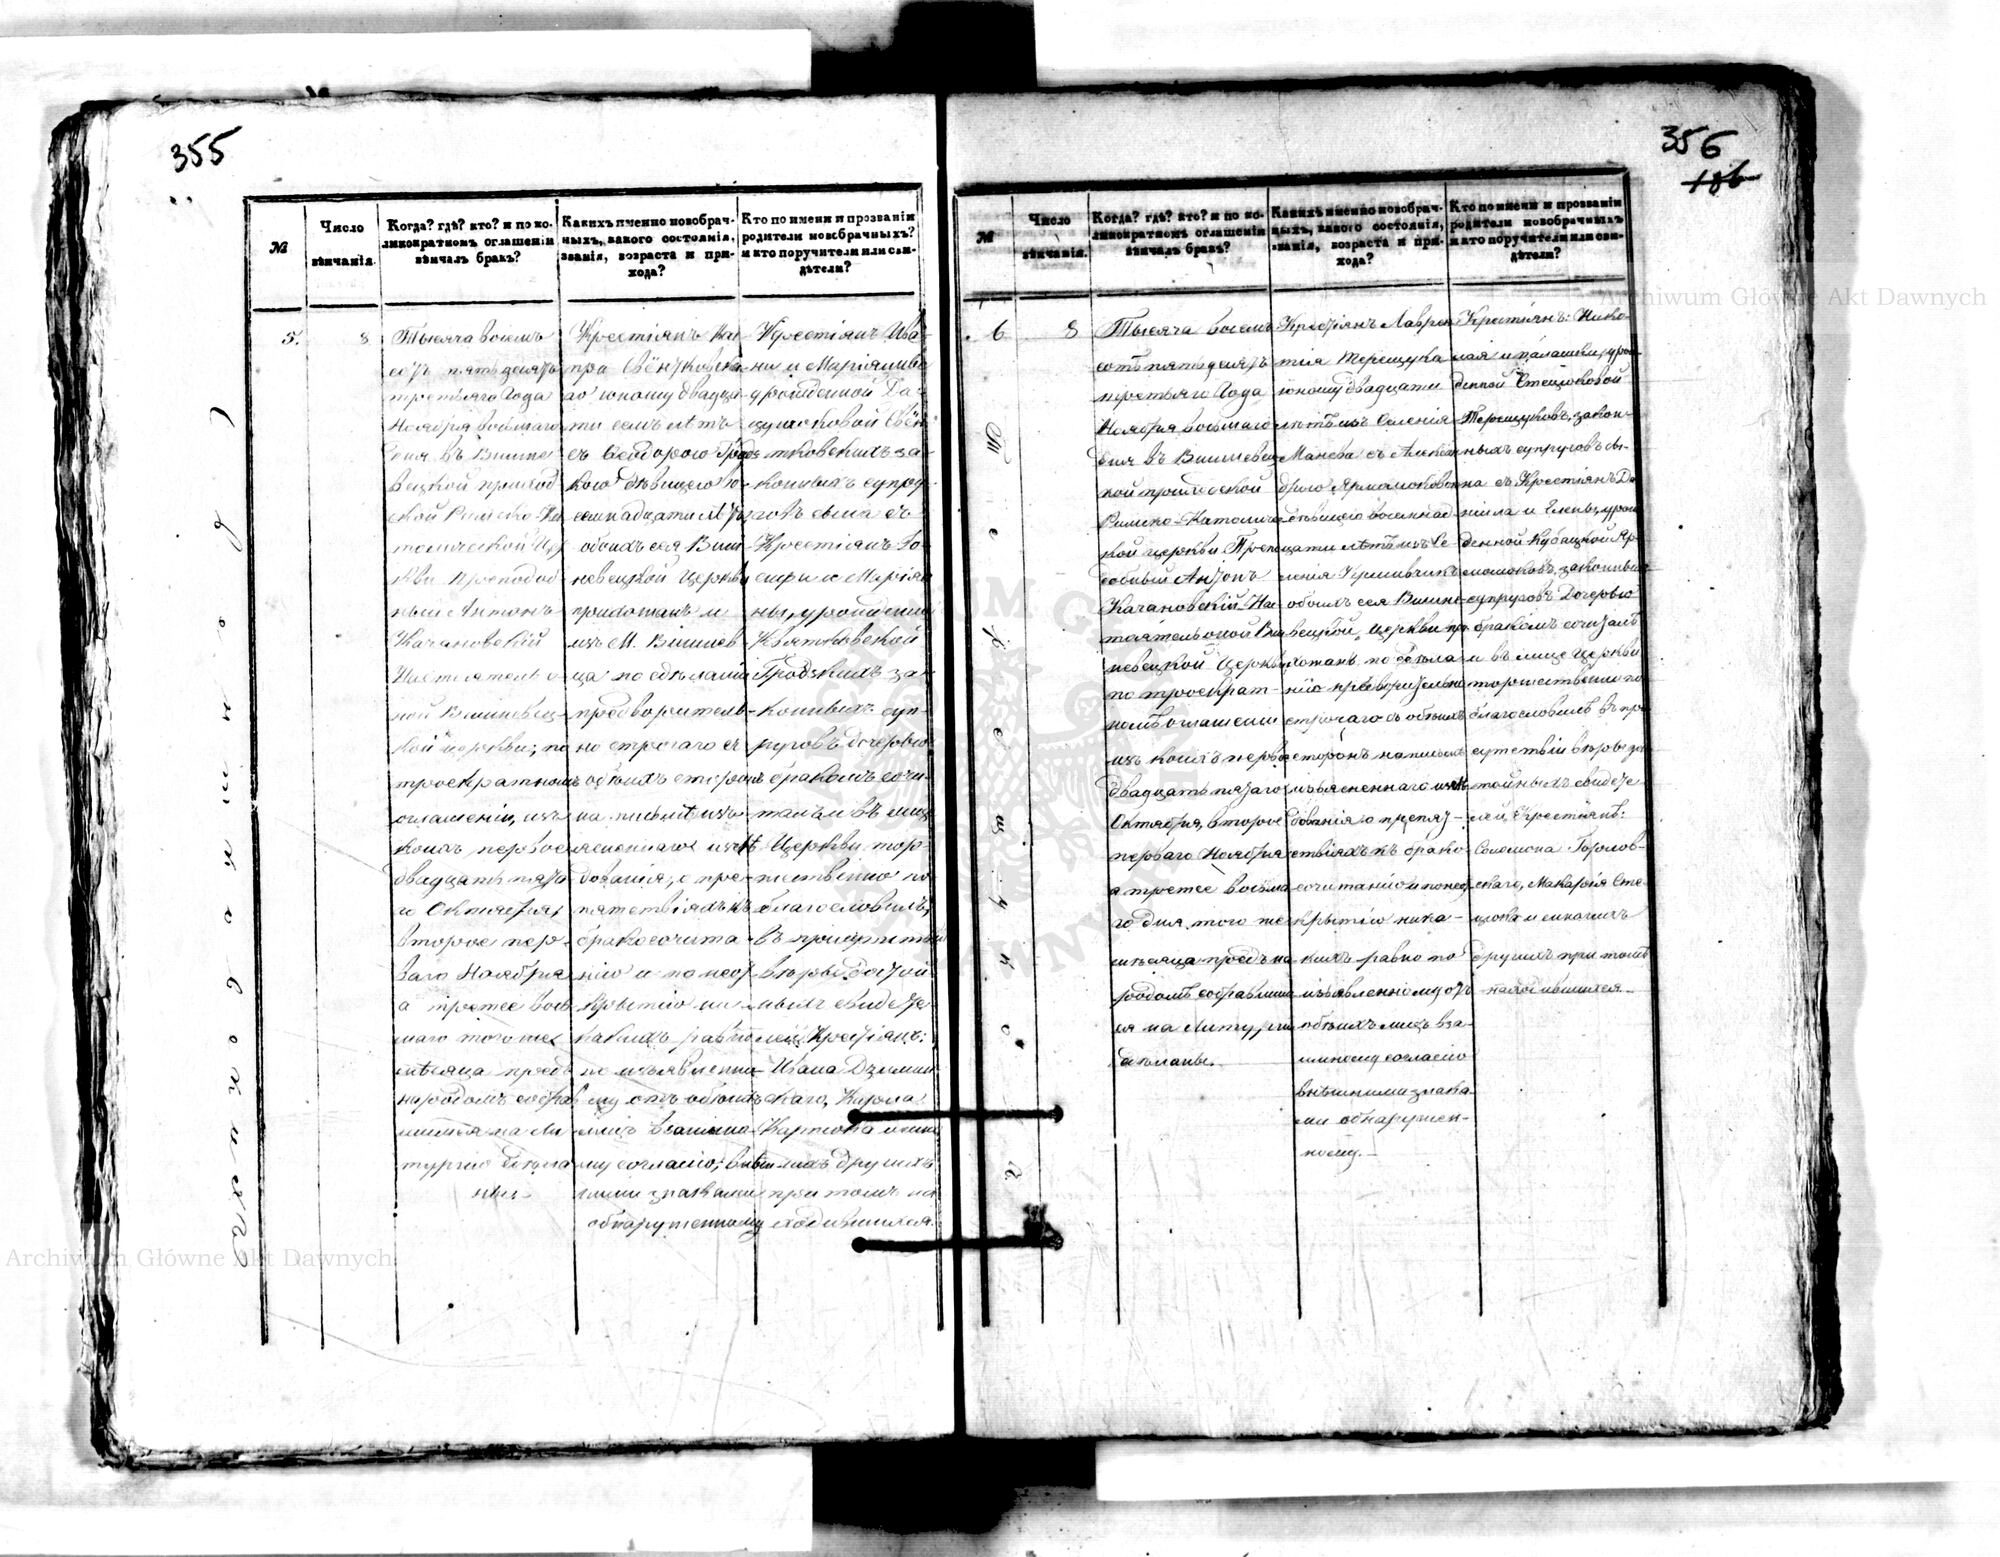 355
№
Число
вѣнчанія.
Когда? гдѣ? кто? и по ко-
ликократномъ оглашеніи
вѣнчалъ бракъ?
Какихъ именно новобрач-
ныхъ, какого состоянія,
званія, возраста и при-
хода?
Кто по имени и прозванію
родители новобрачныхъ?
и кто поручители или сви-
дѣтели?
5.
8
Тысяча восемь
сотъ пятьдесятъ
третьяго Года
Ноября восьмаго
дня въ Вишне
вецкой приход
ской Римско-Ка
толической Цер
кви Преподоб
ный Антонъ
Качановскій
Настоятель о
ной Вишневец-
кой церкви; по
троекратномъ
оглашеніи, изъ
коихъ первое
двадцать пята
го Октября,
второе пер-
ваго Ноября
а третее вось
маго того же
мѣсяца предъ
народомъ собрав
шимся на Ли
тургію дѣла
ны.
Крестіянъ Ка
пра Свёнтковска
го юношу двадца
ти семъ лѣтъ
съ Ѳеодорою Грод
кою дѣвицею во
семнадцати лѣтъ
обоихъ сея Виш
невецкой Церкви
прихожанъ и
изъ М. Вишнев
ца по сдѣланіи
предворитель-
но строгаго съ
обоихъ сторонъ
на письмѣ изъ
ясненнаго изслѣ
дованія, о пре-
пятствіяхъ къ
бракосочита-
нію и по неот
крытію ни
какихъ равно
по изъявленно-
му отъ обоихъ
лицъ взаимно
му согласію, внѣш
ними знаками
обнаруженному
Крестіянъ Ива
на и Маріянны
урожденной Да-
цушковой Свён
тковскихъ за-
конныхъ супру
говъ сына съ
Крестіянъ Іо-
сифа и Маріян
ны, урожденной
Квятковской
Гродзкихъ за-
конныхъ суп-
руговъ дочерью
бракомъ сочи-
талъ и въ лицѣ
Церкви тор-
жественно по
благословилъ,
въ присутствіи
вѣродостой
ныхъ свидѣте
лей Крестіянъ:
Ивана Дзимин
скаго, Кароля
Картона и мно
гихъ другихъ
при томъ на
ходившихся.
356
186
№
Число
вѣнчанія.
Когда? гдѣ? кто? и по ко-
ликократномъ оглашеніи
вѣнчалъ бракъ?
Какихъ именно новобрач-
ныхъ, какого состоянія,
званія, возраста и при-
хода?
Кто по имени и прозванію
родители новобрачныхъ
и кто поручители или сви-
дѣтели?
6
8
Тысяча восемь
сотъ пятьдесятъ
третьяго Года
Ноября восьмаго
дня въ Вишневец
кой приходской
Римско-Католичес
кой церкви Препо
добный Антонъ
Качановскій На-
стоятель оной Виш
невецкой Церкви
по троекрат-
номъ оглашеніи
изъ коихъ первое
двадцать пятаго
Октября, второе
перваго Ноября
а третее восьма
го дня того же
мѣсяца предъ на
родомъ собравшим
ся на Литургію
дѣланы.
Крестіянъ Лаврен
тія Терещука
юношу двадцати
лѣтъ изъ Селенія
Манева съ Алексан
дрою Ярмолюковою
дѣвицею восемнад
цати лѣтъ изъ Се-
ленія
обоихъ сея Вишне-
вецкой церкви при
хожанъ по сдѣла-
нію предворительно
строгаго съ обоихъ
сторонъ на письмѣ
изъясненнаго изслѣ
дованія о препят-
ствіяхъ къ брако-
сочитанію и понеот
крытію ника-
кихъ равно по
изъявленному отъ
обоихъ лицъ вза-
имному согласію
внѣшними знака-
ми обнаружен-
ному.
Крестіянъ: Нико-
лая и Палашки, урож
денной Стецюковой
Терещуковъ, закон-
ныхъ супруговъ сы-
на съ Крестіянъ Да
ніила и Елены, урож
денной Кубацкой Яр
молюковъ, законныхъ
супруговъ Дочерью
бракомъ сочиталъ
и въ лице Церкви
торжественно по
благословилъ въ при
сутствіи вѣродос
тойныхъ свидѣте-
лей, Крестіянъ:
Соломона Горлов-
скаго, Макарія Сте-
цюка и многихъ
другихъ при томъ
находившихся.
Archiwum Główne Akt Dawnych
Archiwum Główne Akt Dawnych